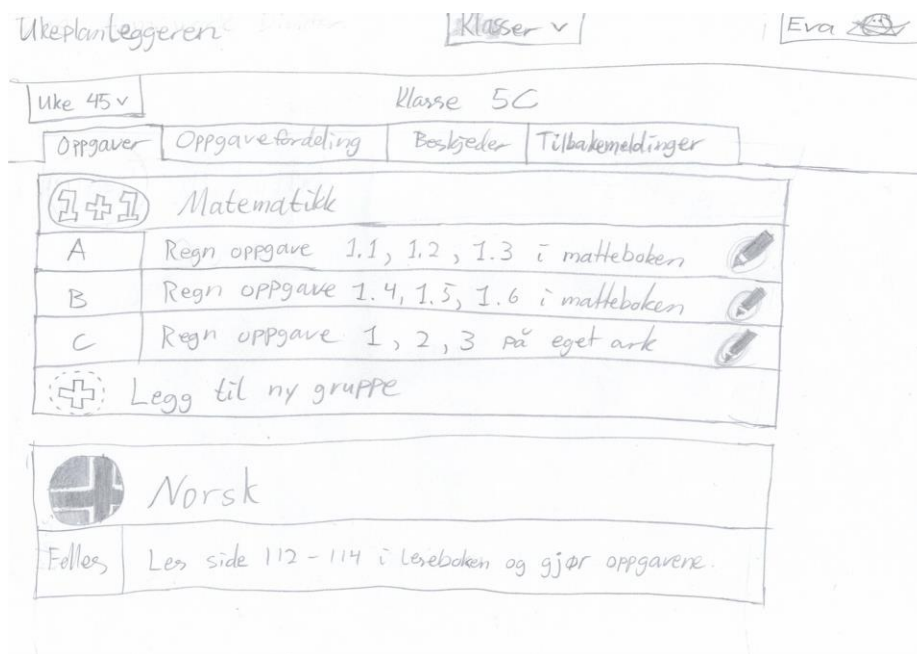 Ukeplanleggeren Klasser v Eva
Uke 45 v Klasse 5C
Oppgaver Oppgavefordeling Beskjeder Tilbakemeldinger
1+1 Matematikk
A Regn oppgave 1.1, 1.2, 1.3 i matteboken
B Regn oppgave 1.4, 1.5, 1.6 i matteboken
C Regn oppgave 1, 2, 3 på eget ark
+ Legg til ny gruppe
Norsk
Felles Les side 112-114 i leseboken og gjør oppgavene.